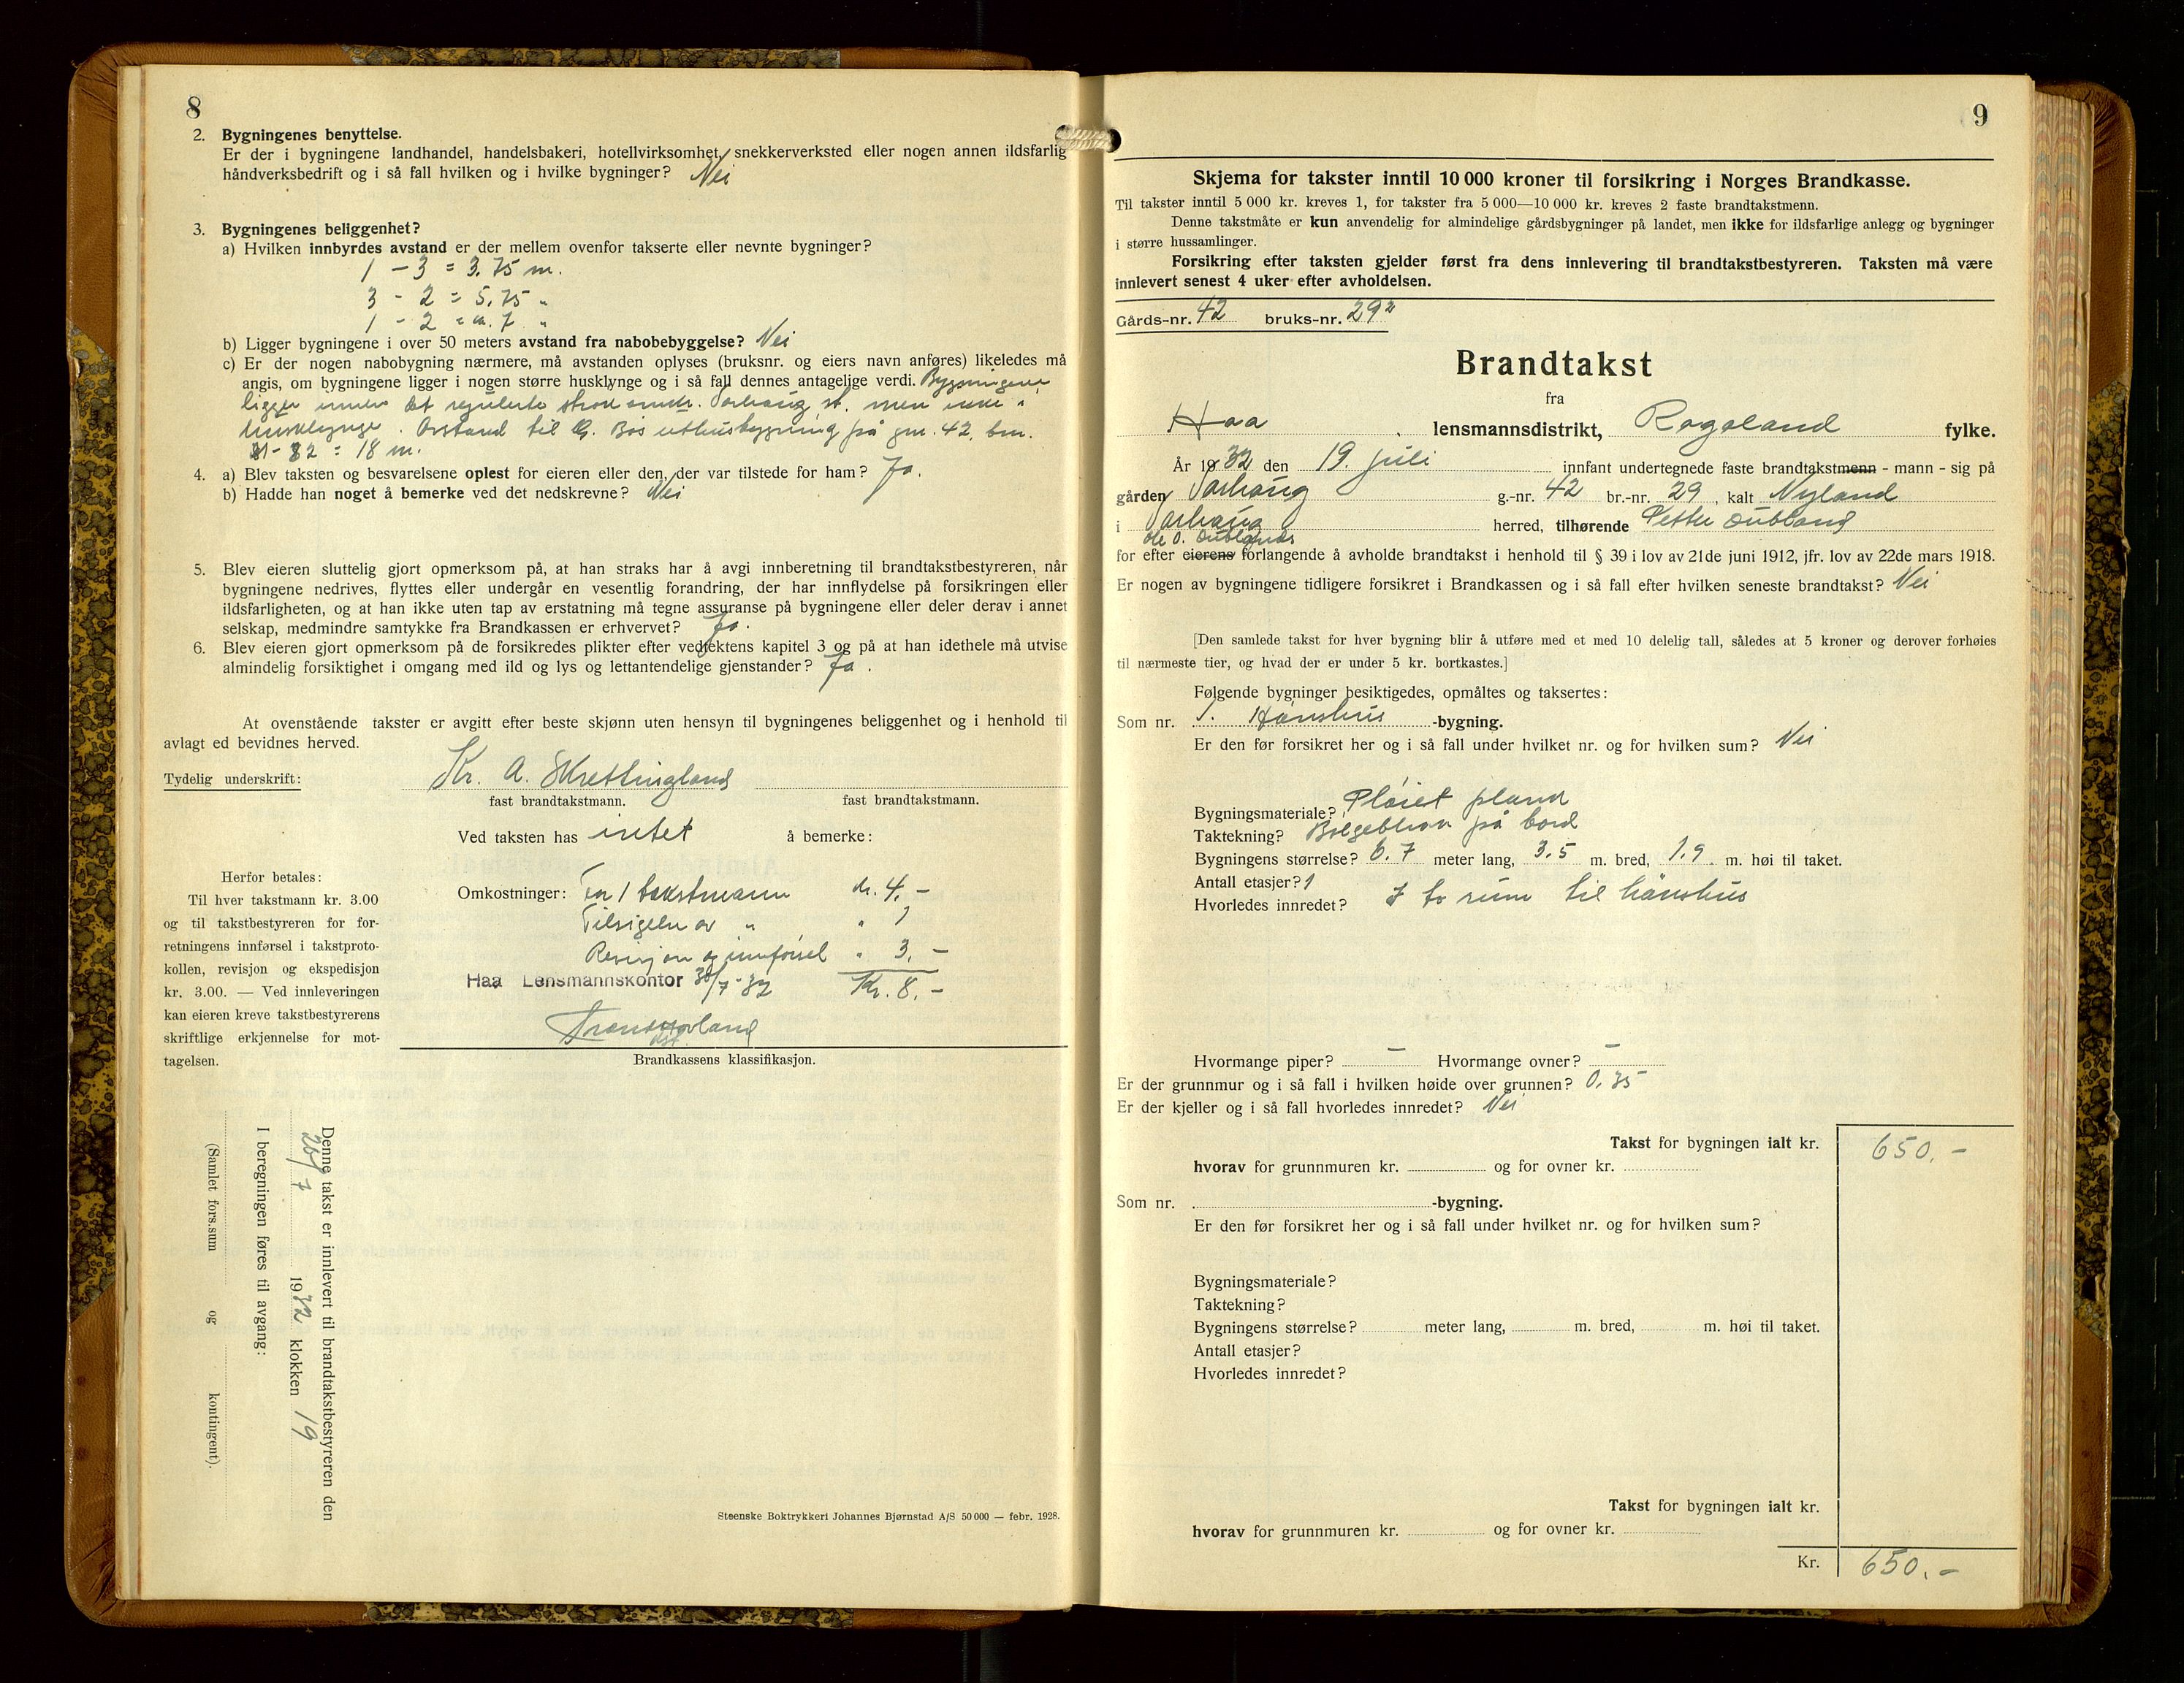 8
2. Bygningenes benyttelse.
Er der i bygningene landhandel, handelsbakeri, hotellvirksomhet, snekkerverksted eller nogen annen ildsfarlig
håndverksbedrift og i så fall hvilken og i hvilke bygninger? Nei
3. Bygningenes beliggenhet?
a) Hvilken innbyrdes avstand er der mellem ovenfor takserte eller nevnte bygninger?
1 - 3 = 3.75 m.
3 - 2 = 5.75 "
1 - 2 = ca. 7 "
b) Ligger bygningene i over 50 meters avstand fra nabobebyggelse? Nei
c) Er der nogen nabobygning nærmere, må avstanden oplyses (bruksnr. og eiers navn anføres) likeledes må
angis, om bygningene ligger i nogen større husklynge og i så fall dennes antagelige verdi. Bygningene
ligger innen det regulerte strok omkr. Varhaug st. men ikke i
husklynge. Avstand til G. Bøs uthusbygning på gnr. 42, bnr.
31-82 = 18 m.
4. a) Blev taksten og besvarelsene oplest for eieren eller den, der var tilstede for ham? Ja.
b) Hadde han noget å bemerke ved det nedskrevne? Nei
5. Blev eieren sluttelig gjort opmerksom på, at han straks har å avgi innberetning til brandtakstbestyreren, når
bygningene nedrives, flyttes eller undergår en vesentlig forandring, der har innflydelse på forsikringen eller
ildsfarligheten, og at han ikke uten tap av erstatning må tegne assuranse på bygningene eller deler derav i annet
selskap, medmindre samtykke fra Brandkassen er erhvervet? Ja.
6. Blev eieren gjort opmerksom på de forsikredes plikter efter vedtektens kapitel 3 og på at han idethele må utvise
almindelig forsiktighet i omgang med ild og lys og lettantendelige gjenstander? Ja.
At ovenstående takster er avgitt efter beste skjønn uten hensyn til bygningenes beliggenhet og i henhold til
avlagt ed bevidnes herved.
Tydelig underskrift: Kr. A. Skrettingland
fast brandtakstmann. fast brandtakstmann.
Ved taksten has intet å bemerke:
Herfor betales:
Til hver takstmann kr. 3.00
og til takstbestyreren for for-
retningens innførsel i takstproto-
kollen, revisjon og ekspedisjon
kr. 3.00. — Ved innleveringen
kan eieren kreve takstbestyrerens
skriftlige erkjennelse for mot-
tagelsen.
Omkostninger: For 1 takstmann kr. 4,-
Tilsigelse av " " 1
Revisjon og innførsel " 3,-
Haa Lensmannskontor 30/7-32 Kr. 8,-
Brandkassens klassifikasjon.
Denne takst er innlevert til brandtakstbestyreren den
20/7 1932 klokken 19
I beregningen føres til avgang:
(Samlet fors.sum og kontingent).
Steenske Boktrykkeri Johannes Bjørnstad A/S 50 000 — febr. 1928.
9
Skjema for takster inntil 10 000 kroner til forsikring i Norges Brandkasse.
Til takster inntil 5 000 kr. kreves 1, for takster fra 5 000—10 000 kr. kreves 2 faste brandtakstmenn.
Denne takstmåte er kun anvendelig for almindelige gårdsbygninger på landet, men ikke for ildsfarlige anlegg og bygninger
i større hussamlinger.
Forsikring efter taksten gjelder først fra dens innlevering til brandtakstbestyreren. Taksten må være
innlevert senest 4 uker efter avholdelsen.
Gårds-nr. 42 bruks-nr. 29²
Brandtakst
fra
Haa lensmannsdistrikt, Rogaland fylke.
År 1932 den 19. juli innfant undertegnede faste brandtakstmenn - mann - sig på
gården Varhaug g.-nr. 42 br.-nr. 29, kalt Nyland
i Varhaug herred, tilhørende Petter Aubland
Ole O. Aublands
for efter eierens forlangende å avholde brandtakst i henhold til § 39 i lov av 21de juni 1912, jfr. lov av 22de mars 1918.
Er nogen av bygningene tidligere forsikret i Brandkassen og i så fall efter hvilken seneste brandtakst? Nei
[Den samlede takst for hver bygning blir å utføre med et med 10 delelig tall, således at 5 kroner og derover forhøies
til nærmeste tier, og hvad der er under 5 kr. bortkastes.]
Følgende bygninger besiktigedes, opmåltes og taksertes:
Som nr. 1. Hønshus -bygning.
Er den før forsikret her og i så fall under hvilket nr. og for hvilken sum? Nei
Bygningsmateriale? Pløiet plank
Taktekning? Bølgeblikk på bord
Bygningens størrelse? 6.7 meter lang, 3.5 m. bred, 1.9 m. høi til taket.
Antall etasjer? 1
Hvorledes innredet? I to rum til hønshus
Hvormange piper? — Hvormange ovner? —
Er der grunnmur og i så fall i hvilken høide over grunnen? 0,35
Er der kjeller og i så fall hvorledes innredet? Nei
Takst for bygningen ialt kr. 650,-
hvorav for grunnmuren kr. og for ovner kr.
Som nr. -bygning.
Er den før forsikret her og i så fall under hvilket nr. og for hvilken sum?
Bygningsmateriale?
Taktekning?
Bygningens størrelse? meter lang, m. bred, m. høi til taket.
Antall etasjer?
Hvorledes innredet?
Takst for bygningen ialt kr.
hvorav for grunnmuren kr. og for ovner kr.
Kr. 650,-